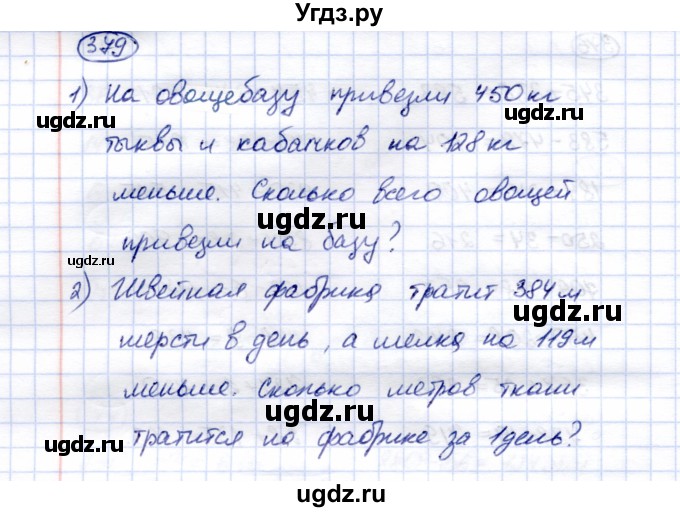 Угдз.ру
379
1) На овощебазу привезли 450 кг
тыквы и кабачков на 128 кг
меньше. Сколько всего овощей
ugdz.ru
ugdz.ru
привезли на базу?
ugdz.ru
2) Швейная фабрика тратит 384 м
ugdz.ru
шерсти в день, а шелка на 119 м
меньше. Сколько метров ткани
ugdz.ru
тратится на фабрике за 1 день?
ugdz.ru
ugdz.ru
ugdz.ru